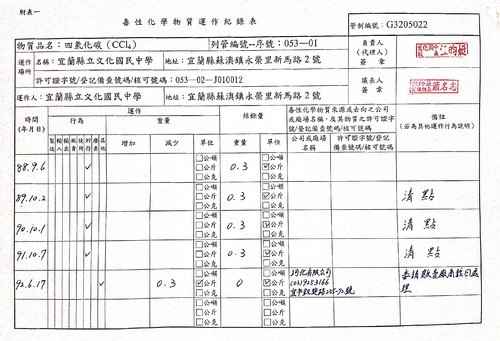 附表一
毒性化學物質運作紀錄表
管制編號：G3205022
物質品名：四氯化碳 (CCl₄)
列管編號--序號：053—01
負責人
(代理人)
簽章
運作場所
名稱：宜蘭縣立文化國民中學
地址：宜蘭縣蘇澳鎮永榮里新馬路2號
許可證字號/登記備查號碼/核可號碼：053—02—J010012
填表人
簽章
運作人：宜蘭縣立文化國民中學
地址：宜蘭縣蘇澳鎮永榮里新馬路2號
時間
(年月日)
運作
行為
重量
製造
輸入
輸出
販賣
使用
貯存
廢棄
其他
增加
減少
單位
結餘量
重量
單位
毒性化學物質來源或去向之公司或廠場名稱，及其物質之許可證字號/登記備查號碼/核可號碼
公司或廠場名稱
許可證字號/登記備查號碼/核可號碼
備註
(若為其他運作行為請說明)
88.9.6 ✓ □公噸 □公斤 □公克 0.3 □公噸 ☑公斤 □公克
89.10.2 ✓ □公噸 □公斤 □公克 0.3 □公噸 ☑公斤 □公克 清點
90.10.1 ✓ □公噸 □公斤 □公克 0.3 □公噸 ☑公斤 □公克 清點
91.10.7 ✓ □公噸 □公斤 □公克 0.3 □公噸 ☑公斤 □公克 清點
92.6.17 ✓ 0.3 □公噸 ☑公斤 □公克 0 □公噸 ☑公斤 □公克
有限公司
(03)9253166
□公噸 □公斤 □公克 □公噸 □公斤 □公克